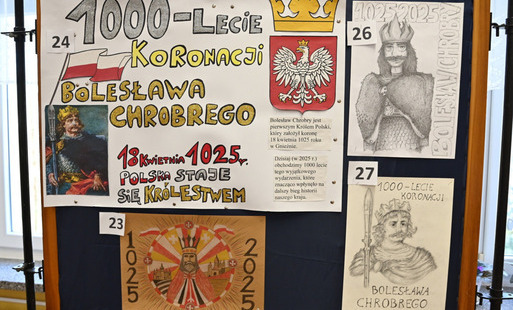 24
1000-LECIE
KORONACJI
BOLESŁAWA
CHROBREGO
18 KWIETNIA 1025r.
POLSKA STAJE
SIĘ KRÓLESTWEM
Bolesław Chrobry jest
pierwszym Królem Polski,
który nałożył koronę
18 kwietnia 1025 roku
w Gnieźnie.
Dzisiaj (w 2025 r.)
obchodzimy 1000 lecie
tego wyjątkowego
wydarzenia, które
znacząco wpłynęło na
dalszy bieg historii
naszego kraju.
26
1025 2025
BOLESŁAW CHROBRY
23
1025
2025
27
1000-LECIE
KORONACJI
BOLESŁAWA
CHROBREGO